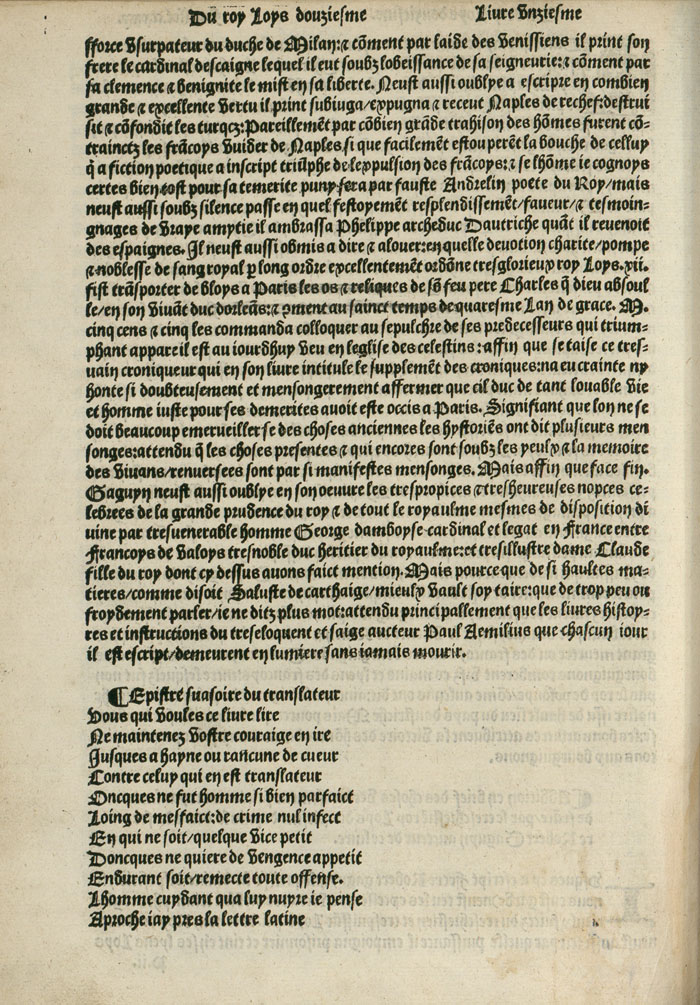 Du roy Loys douziesme Liure Vnziesme
fforce Vsurpateur du duche de Milan:⁊ cõment par laide des Venissiens il print son
frere le cardinal descaigne lequel il eut soubz lobeissance de sa seigneurie:⁊ cõment par
sa clemence ⁊ benignite le mist en sa liberte. Neust aussi oublye a escripre en combien
grande ⁊ excellente Vertu il print subiuga/expugna ⁊ receut Naples de rechef:destrui
sit ⁊ cõfondit les turcqz:Pareillemẽt par cõbien grãde trahison des hõmes furent cõ-
trainctz les frãcoys Vuider de Naples.si que facilemẽt estouperẽt la bouche de celluy
q̃ a fiction poetique a inscript triũphe de lexpulsion des frãcoys:⁊ se lhõme ie cognoys
certes bien tost pour sa temerite puny sera par fauste Andrelin poete du Roy/mais
neust aussi soubz silence passe en quel festoyemẽt resplendissemẽt/faueur/⁊ tesmoin-
gnages de Vraye amytie il ambrassa Phelippe archeduc Dautriche quãt il reuenoit
des espaignes. Il neust aussi obmis a dire ⁊ a louer:en quelle deuotion charite/pompe
⁊ noblesse de sang royal p long ordre excellentemẽt ordõne tresglorieux roy Loys.xii.
fist trãsporter de bloys a Paris les os ⁊ reliques de sõ feu pere Charles q̃ dieu absoul
le/en son Viuãt duc dorleãs:⁊ cõment au sainct temps de quaresme Lan de grace. M.
cinq cens ⁊ cinq les commanda colloquer au sepulchre de ses predecesseurs qui trium-
phant appareil est au iourdhuy Veu en leglise des celestins:affin que se taise ce tres-
uain croniqueur qui en son liure intitule le supplemẽt des croniques:na eu crainte ny
honte si doubteusement et mensongerement affermer que cil duc de tant louable Vie
et homme iuste pour ses demerites auoit este occis a Paris. Signifiant que lon ne se
doit beaucoup emerueiller se des choses anciennes les hystoriẽs ont dit plusieurs men
songes:attendu q̃ les choses presentes ⁊ qui encores sont soubz les yeulx ⁊ la memoire
des Viuans/renuersees sont par si manifestes mensonges. Mais affin que face fin.
Gaguyn neust aussi oublye en son oeuure les trespropices ⁊ tresheureuses nopces ce-
lebrees de la grande prudence du roy ⁊ de tout le royaulme mesmes de disposition di
uine par tresuenerable homme George damboyse cardinal et legat en France entre
Francoys de Valoys tresnoble duc heritier du royaulme:et tresillustre dame Claude
fille du roy dont cy dessus auons faict mention. Mais pource que de si haultes ma-
tieres/comme disoit Saluste de carthaige/mieulx Vault soy taire:que de trop peu ou
froydement parler/ie ne ditz plus mot:attendu principallement que les liures histoy-
res et instructions du treseloquent et saige aucteur Paul Aemilius que chascun iour
il est escript/demeurent en lumiere sans iamais mourir.
¶Epistre suasoire du translateur
Vous qui Voules ce liure lire
Ne maintenez Vostre couraige en ire
Jusques a hayne ou rancune de cueur
Contre celuy qui en est translateur
Oncques ne fut homme si bien parfaict
Loing de messaict:de crime nul infect
En qui ne soit/quelque Vice petit
Doncques ne quiere de Vengence appetit
Endurant soit/remecte toute offense.
Lhomme cuydant qua luy nuyre ie pense
Aproche iay pres la lettre latine